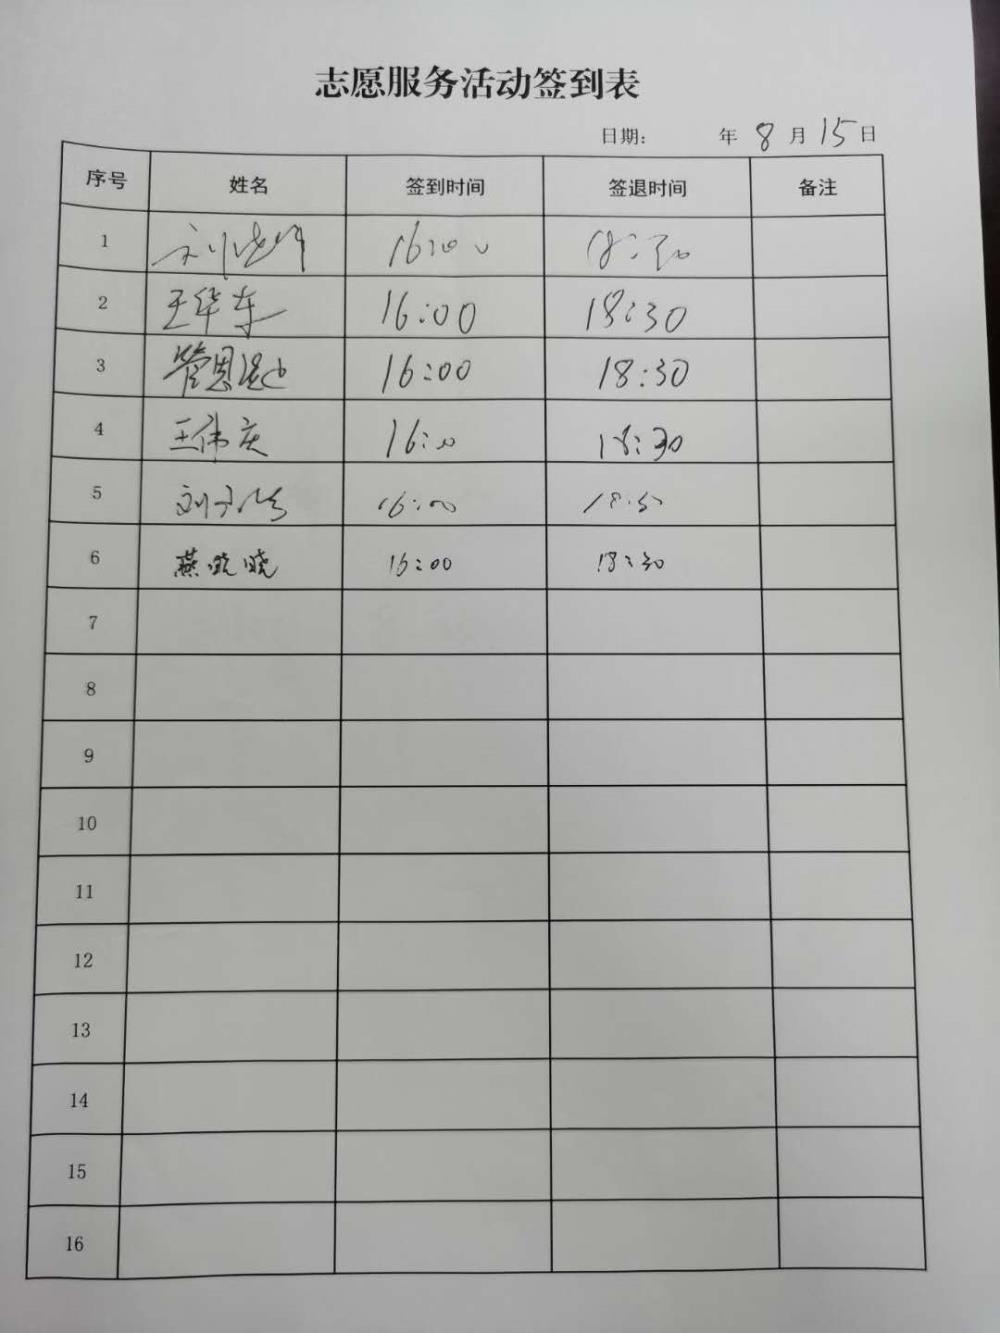 志愿服务活动签到表
日期: 年 8 月 15 日
序号 姓名 签到时间 签退时间 备注
1 16:00 18:30
2 王华东 16:00 18:30
3 管恩 16:00 18:30
4 王伟庆 16:00 18:30
5 刘 16:00 18:30
6 燕晓晓 16:00 18:30
7
8
9
10
11
12
13
14
15
16